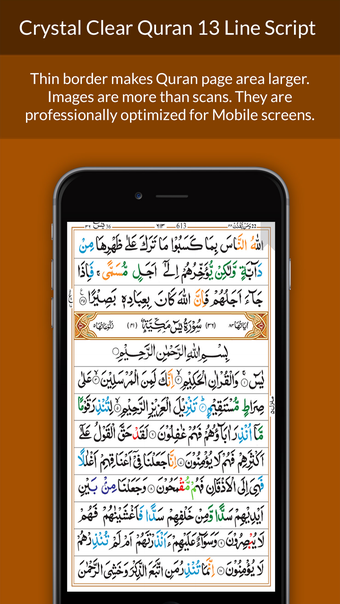 Crystal Clear Quran 13 Line Script
Thin border makes Quran page area larger.
Images are more than scans. They are
professionally optimized for Mobile screens.
613
اللّٰهُ النَّاسَ بِمَا كَسَبُوْا مَا تَرَكَ عَلٰى ظَهْرِهَا مِنْ
دَآبَّةٍ وَّلٰكِنْ يُّؤَخِّرُهُمْ اِلٰٓى اَجَلٍ مُّسَمًّى ۚ فَاِذَا
جَآءَ اَجَلُهُمْ فَاِنَّ اللّٰهَ كَانَ بِعِبَادِهٖ بَصِيْرًا ۝
(٣٦) سُوْرَةُ يٰسٓ مَكِّيَّةٌ (٤١)
بِسْمِ اللّٰهِ الرَّحْمٰنِ الرَّحِيْمِ ۝
يٰسٓ ۝ وَالْقُرْاٰنِ الْحَكِيْمِ ۝ اِنَّكَ لَمِنَ الْمُرْسَلِيْنَ ۝ عَلٰى
صِرَاطٍ مُّسْتَقِيْمٍ ۝ تَنْزِيْلَ الْعَزِيْزِ الرَّحِيْمِ ۝ لِتُنْذِرَ قَوْمًا
مَّآ اُنْذِرَ اٰبَآؤُهُمْ فَهُمْ غٰفِلُوْنَ ۝ لَقَدْ حَقَّ الْقَوْلُ عَلٰٓى
اَكْثَرِهِمْ فَهُمْ لَا يُؤْمِنُوْنَ ۝ اِنَّا جَعَلْنَا فِىْٓ اَعْنَاقِهِمْ اَغْلٰلًا
فَهِىَ اِلَى الْاَذْقَانِ فَهُمْ مُّقْمَحُوْنَ ۝ وَجَعَلْنَا مِنْۢ بَيْنِ
اَيْدِيْهِمْ سَدًّا وَّمِنْ خَلْفِهِمْ سَدًّا فَاَغْشَيْنٰهُمْ فَهُمْ
لَا يُبْصِرُوْنَ ۝ وَسَوَآءٌ عَلَيْهِمْ ءَاَنْذَرْتَهُمْ اَمْ لَمْ تُنْذِرْهُمْ
لَا يُؤْمِنُوْنَ ۝ اِنَّمَا تُنْذِرُ مَنِ اتَّبَعَ الذِّكْرَ وَخَشِىَ الرَّحْمٰنَ